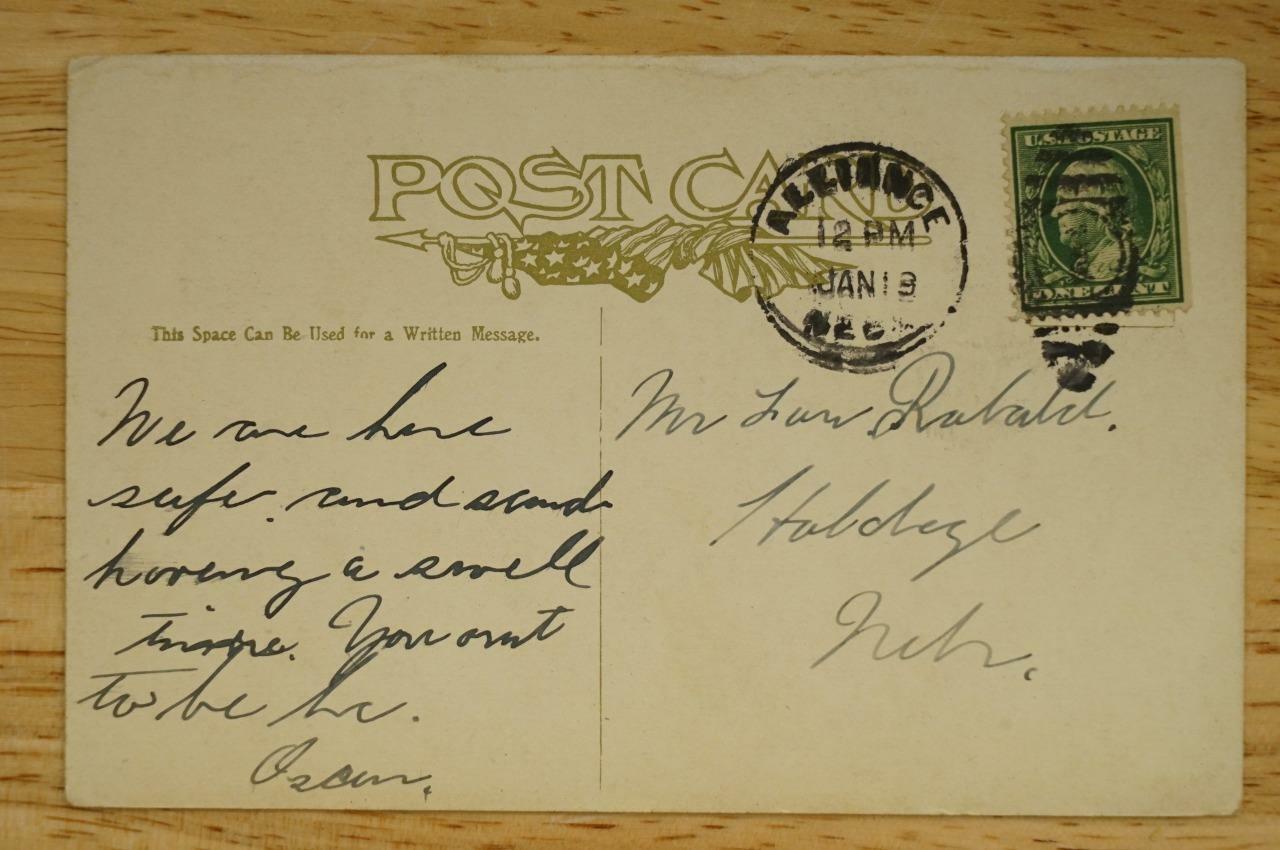 POST CARD
ALLIANCE
12 PM
JAN 19
NEBR
U.S. POSTAGE
ONE CENT
This Space Can Be Used for a Written Message.
We are here
safe and sound
having a swell
time. You out
to be he.
Oscar.
Mr Rabald.
Holdrege
Nebr.